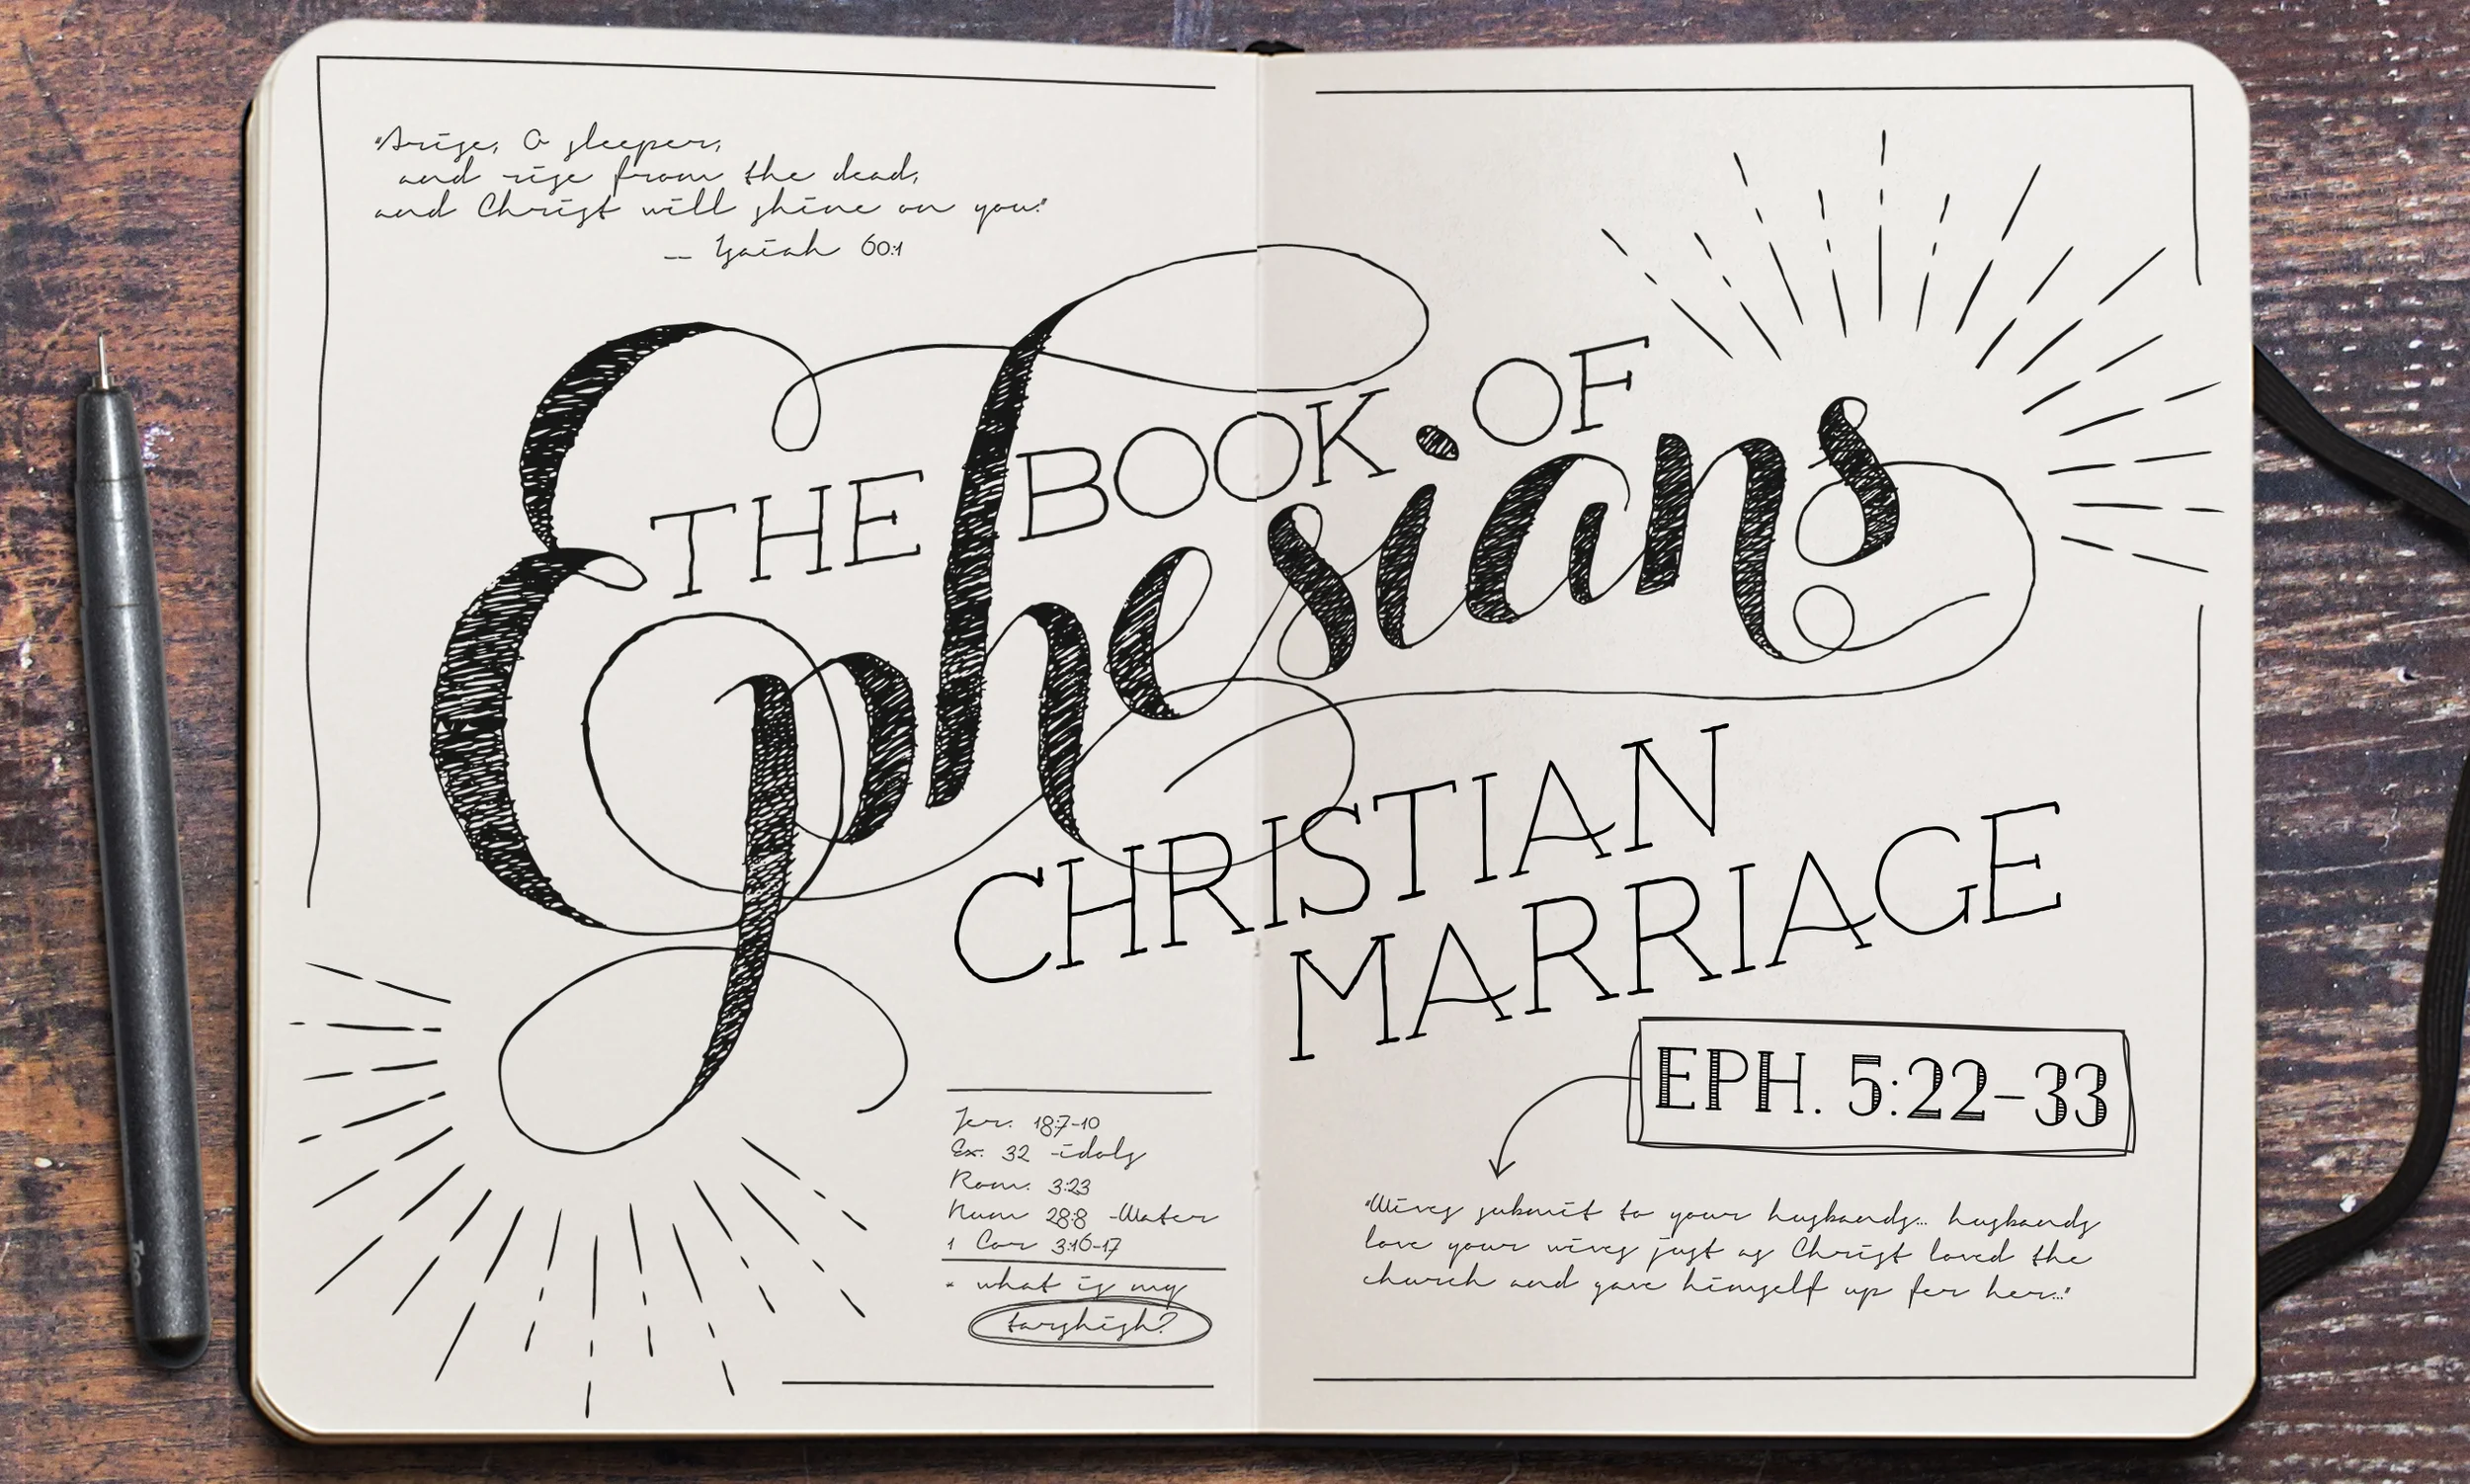 "Arise, O sleeper,
and rise from the dead,
and Christ will shine on you."
— Isaiah 60:1
THE BOOK OF
Ephesians
CHRISTIAN
MARRIAGE
EPH. 5:22-33
Jer. 18:7-10
Ex. 32 -idols
Rom. 3:23
Num 28:8 -Water
1 Cor 3:16-17
* what is my
tarshish?
"Wives submit to your husbands... husbands
love your wives just as Christ loved the
church and gave himself up for her..."